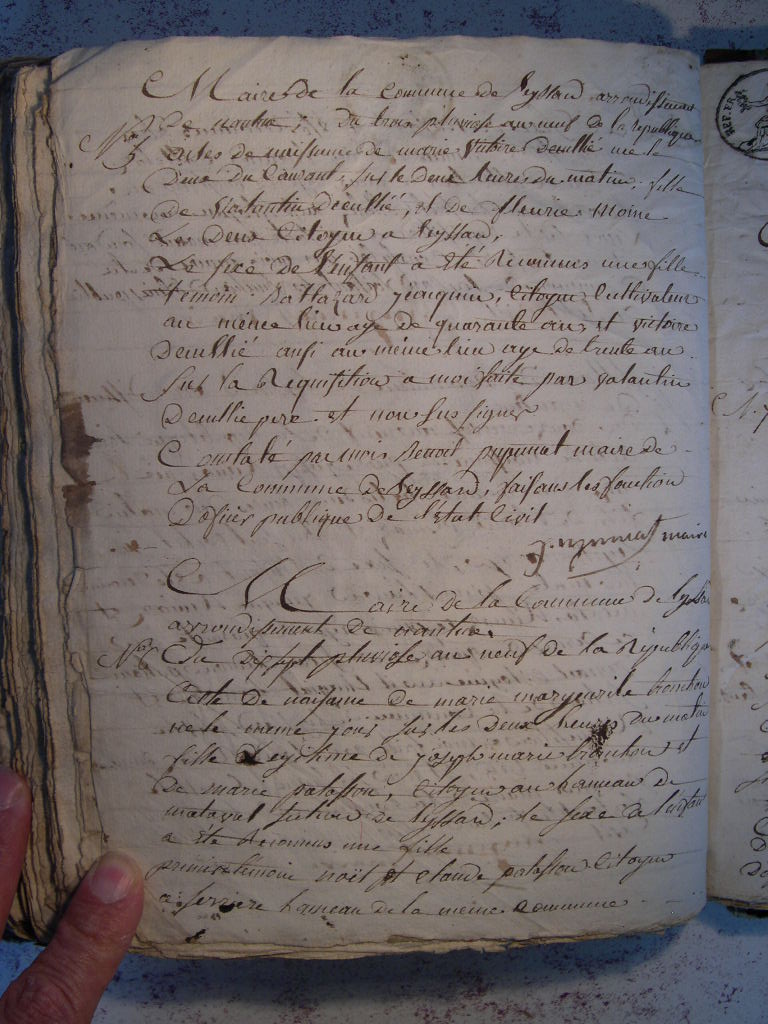 Maires de la Commune de Leyssard arrondissement
de nantua, du trois pluviose an neuf de la republique
No 5
actes de naissance de marie victoire Deullié née le
Deux Du Courant, sur le Deux heures du matin, fille
De Valantin Deullié, et De fleurie Moine
Les Deux Citoyen a Leyssard,
Le sexe de l'enfant a été Reconnus une fille
temoin Baltazard citoyen Cultivateur
au même lieu age de quarante an, et victoire
Deullié ausi au même lieu age de trente an
Sur la Requisition a moi faite par valantin
Deullie pere et non sus signer
Constaté par mois Benoit maire de
La Commune De Leyssard, faisans les fonction
D'oficier publique De l'état Civil
maire
Maire de la Commune de Leyssard
arrondissement de nantua
No 6
Du Dissept pluviose an neuf de la République
Acte de naisance de marie marguerite
née le meme jour sur les Deux heures Du matin
fille Legitime de joseph marie et
De marie palasson, Citoyen au hameau de
section de Leyssard, le sexe de l'enfant
a été Reconnus une fille
premier temoin noël et claude palasson Citoyen
a hameau de la meme Commune
REP. FRA